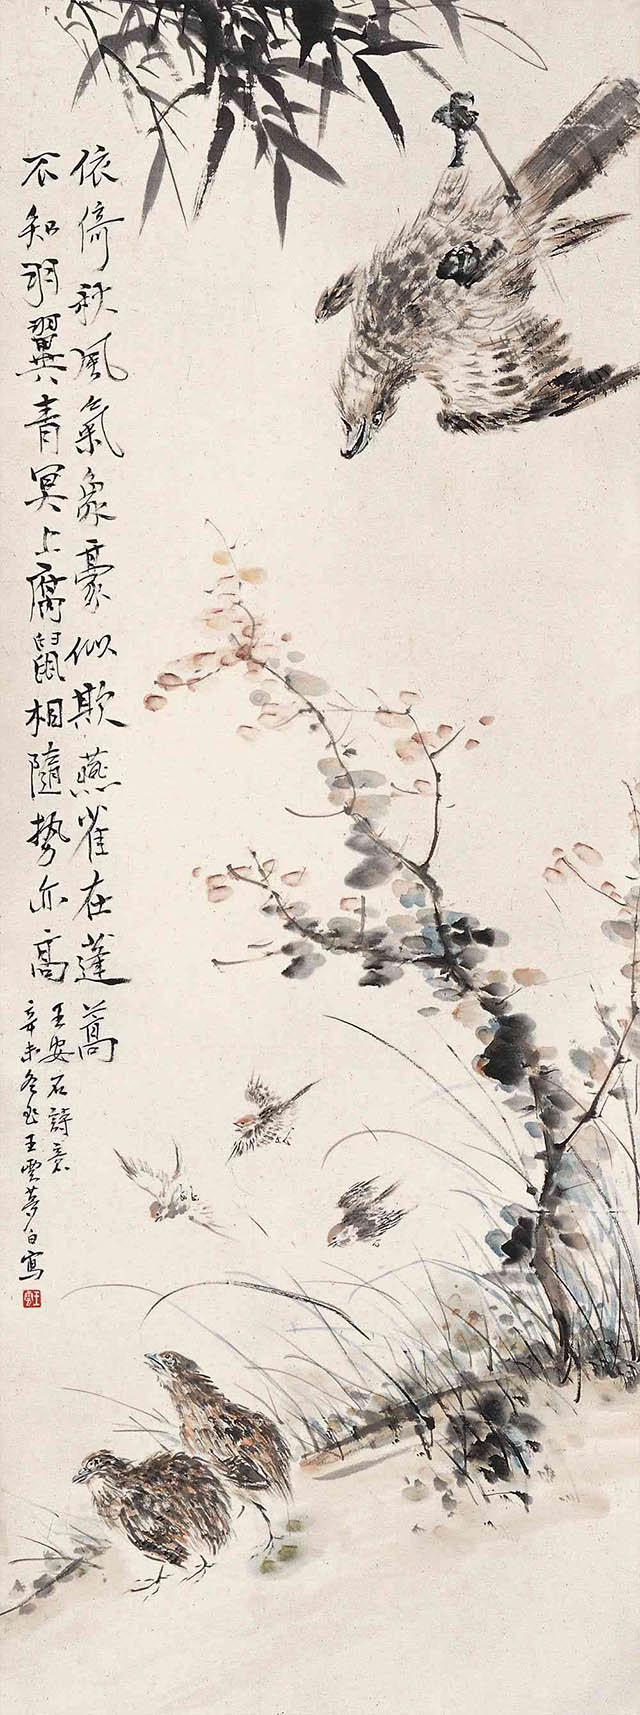 依倚秋風氣象豪似欺燕雀在蓬蒿
不知羽翼青冥上腐鼠相隨勢亦高
王安石詩意
辛未冬王雲夢白寫